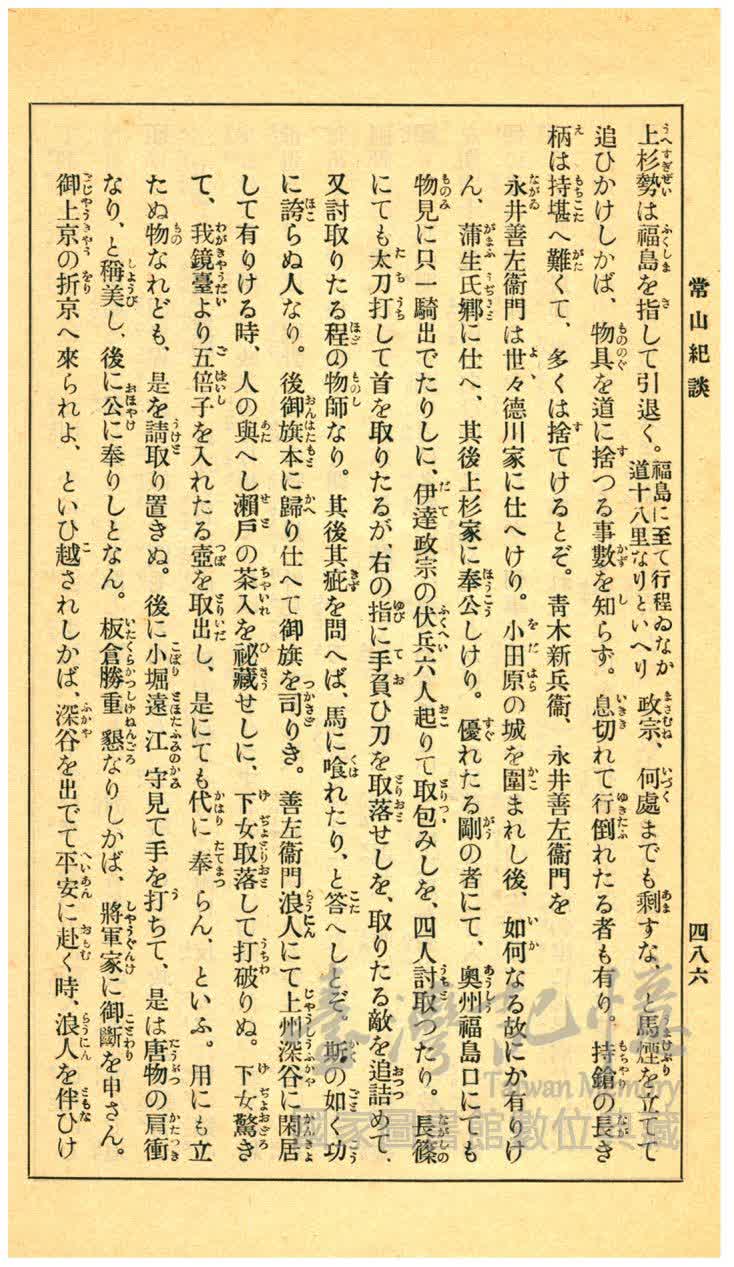 常山紀談
四八六
上杉勢は福島を指して引退く。福島に至て行程ゐなか道十八里なりといへり 政宗、何處までも剩すな、と馬煙を立てて
追ひかけしかば、物具を道に捨つる事數を知らず。息切れて行倒れたる者も有り。持鎗の長き
柄は持堪へ難くて、多くは捨てけるとぞ。靑木新兵衞、永井善左衞門を
永井善左衞門は世々德川家に仕へけり。小田原の城を圍まれし後、如何なる故にか有りけ
ん、蒲生氏鄕に仕へ、其後上杉家に奉公しけり。優れたる剛の者にて、奧州福島口にても
物見に只一騎出でたりしに、伊達政宗の伏兵六人起りて取包みしを、四人討取つたり。長篠
にても太刀打して首を取りたるが、右の指に手負ひ刀を取落せしを、取りたる敵を追詰めて、
又討取りたる程の物師なり。其後其疵を問へば、馬に喰れたり、と答へしとぞ。斯の如く功
に誇らぬ人なり。後御旗本に歸り仕へて御旗を司りき。善左衞門浪人にて上州深谷に閑居
して有りける時、人の與へし瀨戶の茶入を祕藏せしに、下女取落して打破りぬ。下女驚き
て、我鏡臺より五倍子を入れたる壺を取出し、是にても代に奉らん、といふ。用にも立
たぬ物なれども、是を請取り置きぬ。後に小堀遠江守見て手を打ちて、是は唐物の肩衝
なり、と稱美し、後に公に奉りしとなん。板倉勝重懇なりしかば、將軍家に御斷を申さん。
御上京の折京へ來られよ、といひ越されしかば、深谷を出でて平安に赴く時、浪人を伴ひけ
臺灣記憶
Taiwan Memory
國家圖書館數位典藏